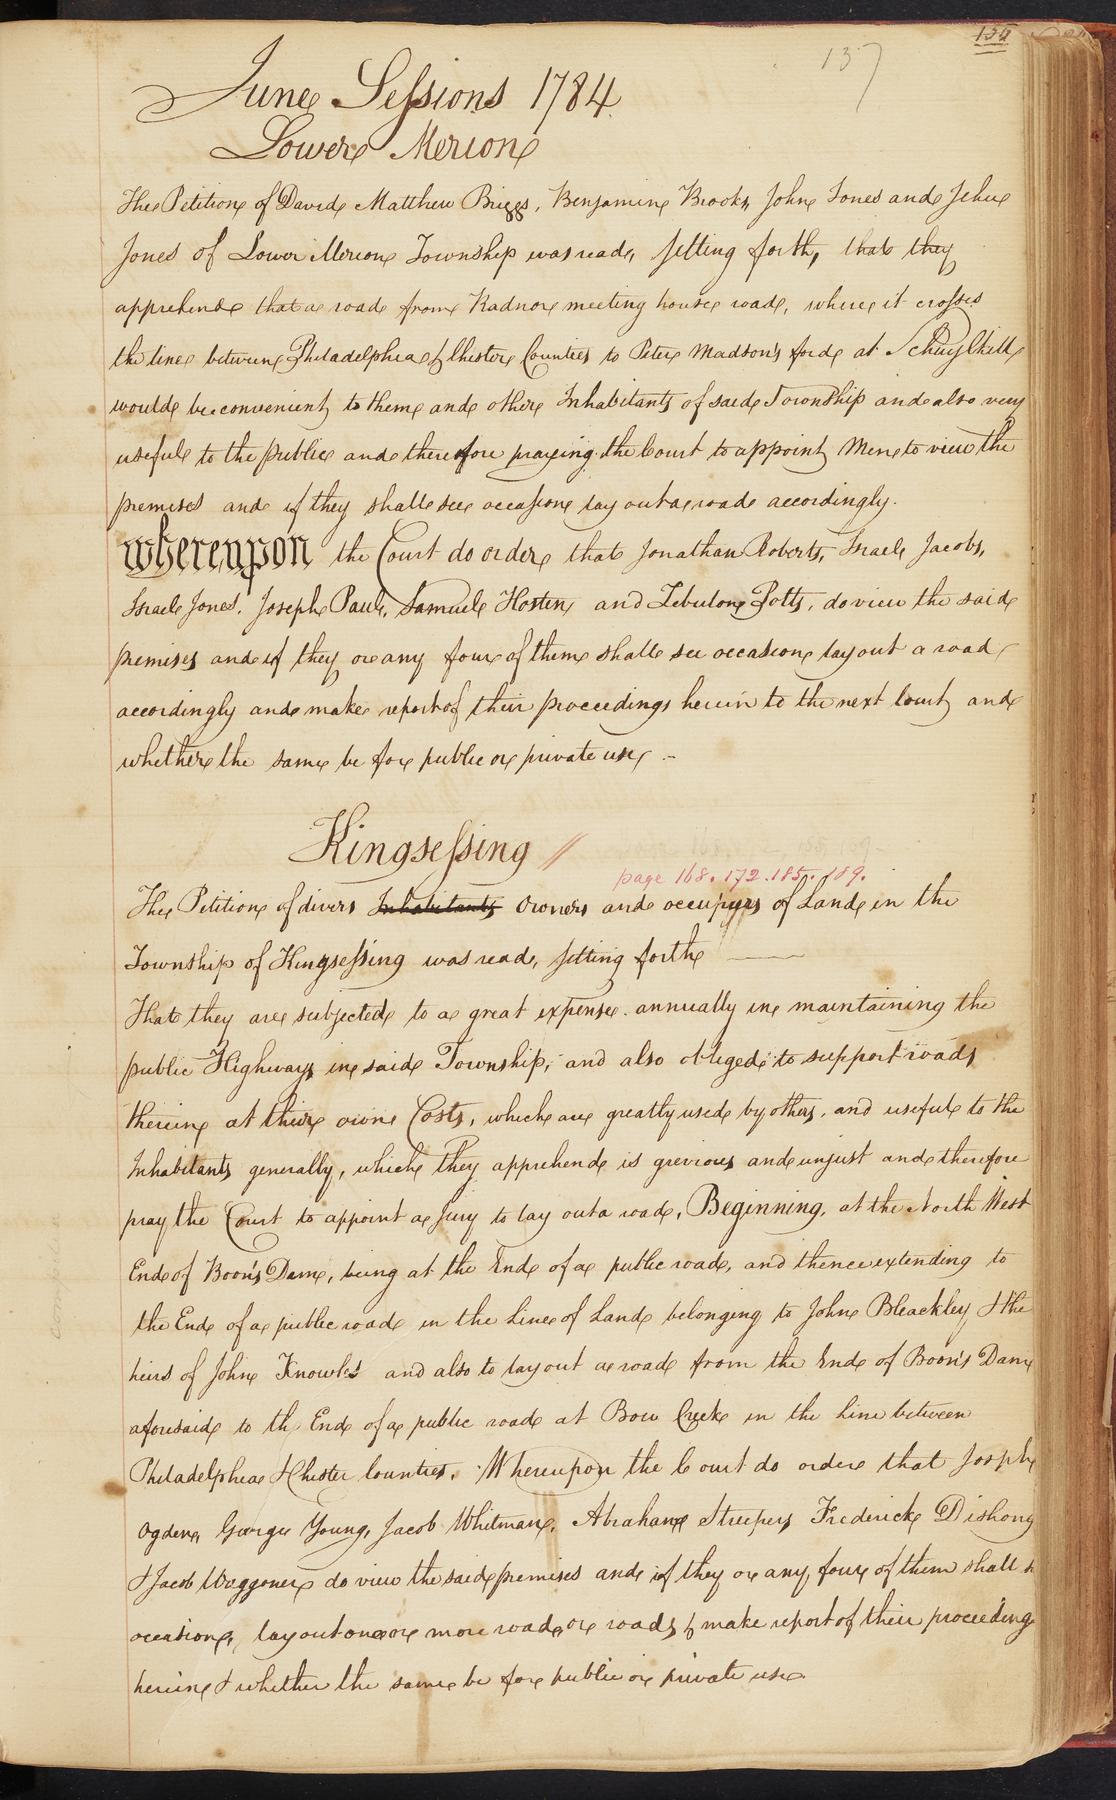 137
June Sessions 1784
Lower Merion
The Petition of David Matthew Briggs, Benjamin Brooks, John Jones and Jehu
Jones of Lower Merion Township was read, setting forth, that they
apprehend that a road from Radnor meeting house road, where it crosses
the line between Philadelphia & Chester Counties to Peter Madson's ford at Schuylkill
would be convenient to them and other Inhabitants of said Township and also very
useful to the public and therefore praying the Court to appoint Men to view the
premises and if they shall see occasion lay out a road accordingly.
Whereupon the Court do order that Jonathan Roberts, Israel Jacobs,
Israel Jones, Joseph Paul, Samuel Hosten and Zebulon Potts, do view the said
premises and if they or any four of them shall see occasion lay out a road
accordingly and make report of their proceedings herein to the next Court and
whether the same be for public or private use –
Kingsessing //
page 168. 172. 185. 189.
The Petition of divers Inhabitants Owners and occupiers of Land in the
Township of Kingsessing was read, setting forth
That they are subjected to a great expense annually in maintaining the
public Highways in said Township, and also obliged to support roads
therein at their own Costs, which are greatly used by others, and useful to the
Inhabitants generally, which they apprehend is grevious and unjust and therefore
pray the Court to appoint a Jury to lay out a road, Beginning, at the North West
End of Boon's Dam, being at the End of a public road, and thence extending to
the End of a public road in the Line of Land belonging to John Bleackley & the
heirs of John Knowles and also to lay out a road from the End of Boon's Dam
aforesaid to th End of a public road at Bow Creek in the Line between
Philadelphia & Chester Counties. Whereupon the Court do order that Joseph
Ogden, George Young, Jacob Whitman, Abraham Streeper, Frederick Dishong
& Jacob Waggoner do view the said premises and if they or any four of them shall
occasion, lay out one or more road or roads & make report of their proceeding
herein & whether the same be for public or private use